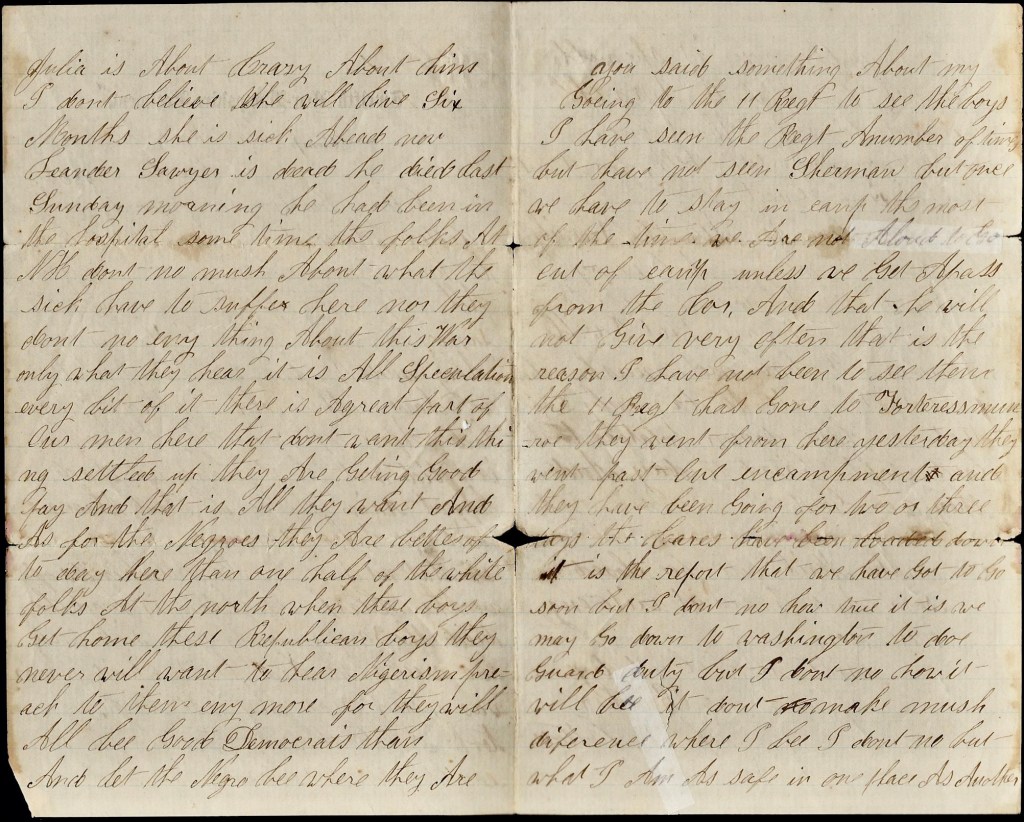 Julia is About Crazy About him
I dont believe she will live Six
Months she is sick Abead now
Leander Sawyer is dead he died last
Sunday morning he had been in
the hospital some time the folks At
NH dont no mush About what the
sick have to suffer here nor they
dont no eny thing About this War
only what they hear it is All Speculation
every bit of it there is Agreat part of
Our men here that dont want this thi
ng settled up they Are Geting Good
Pay And that is All they want And
As for the Negroes they Are better of
to day here than one half of the white
folks At the north when these boys
Get home these Republican boys they
never will want to hear Nigerism pre-
ach to them eny more for they will
All bee Good Democrats than
And let the Negro bee where they Are
you said something About my
Goeing to the 11 Regt to see the boys
I have seen the Regt Anumber of times
but have not seen Sherman but once
we have to stay in camp the most
of the time we Are not Aloud to Go
out of camp unless we Get Apass
from the Cor, And that he will
not Give very often that is the
reason I have not been to see them
the 11 Regt has Gone to Forteressmun
-roe they went from here yesterday they
went past Our encampment and
they have been Going for two or three
days the Cares have been loaded down
it is the report that we have Got to Go
soon but I dont no how true it is we
may Go down to washington to doe
Guard duty but I dont no how it
will bee it dont make mush
diference where I bee I dont no but
what I Am As safe in one place As Another